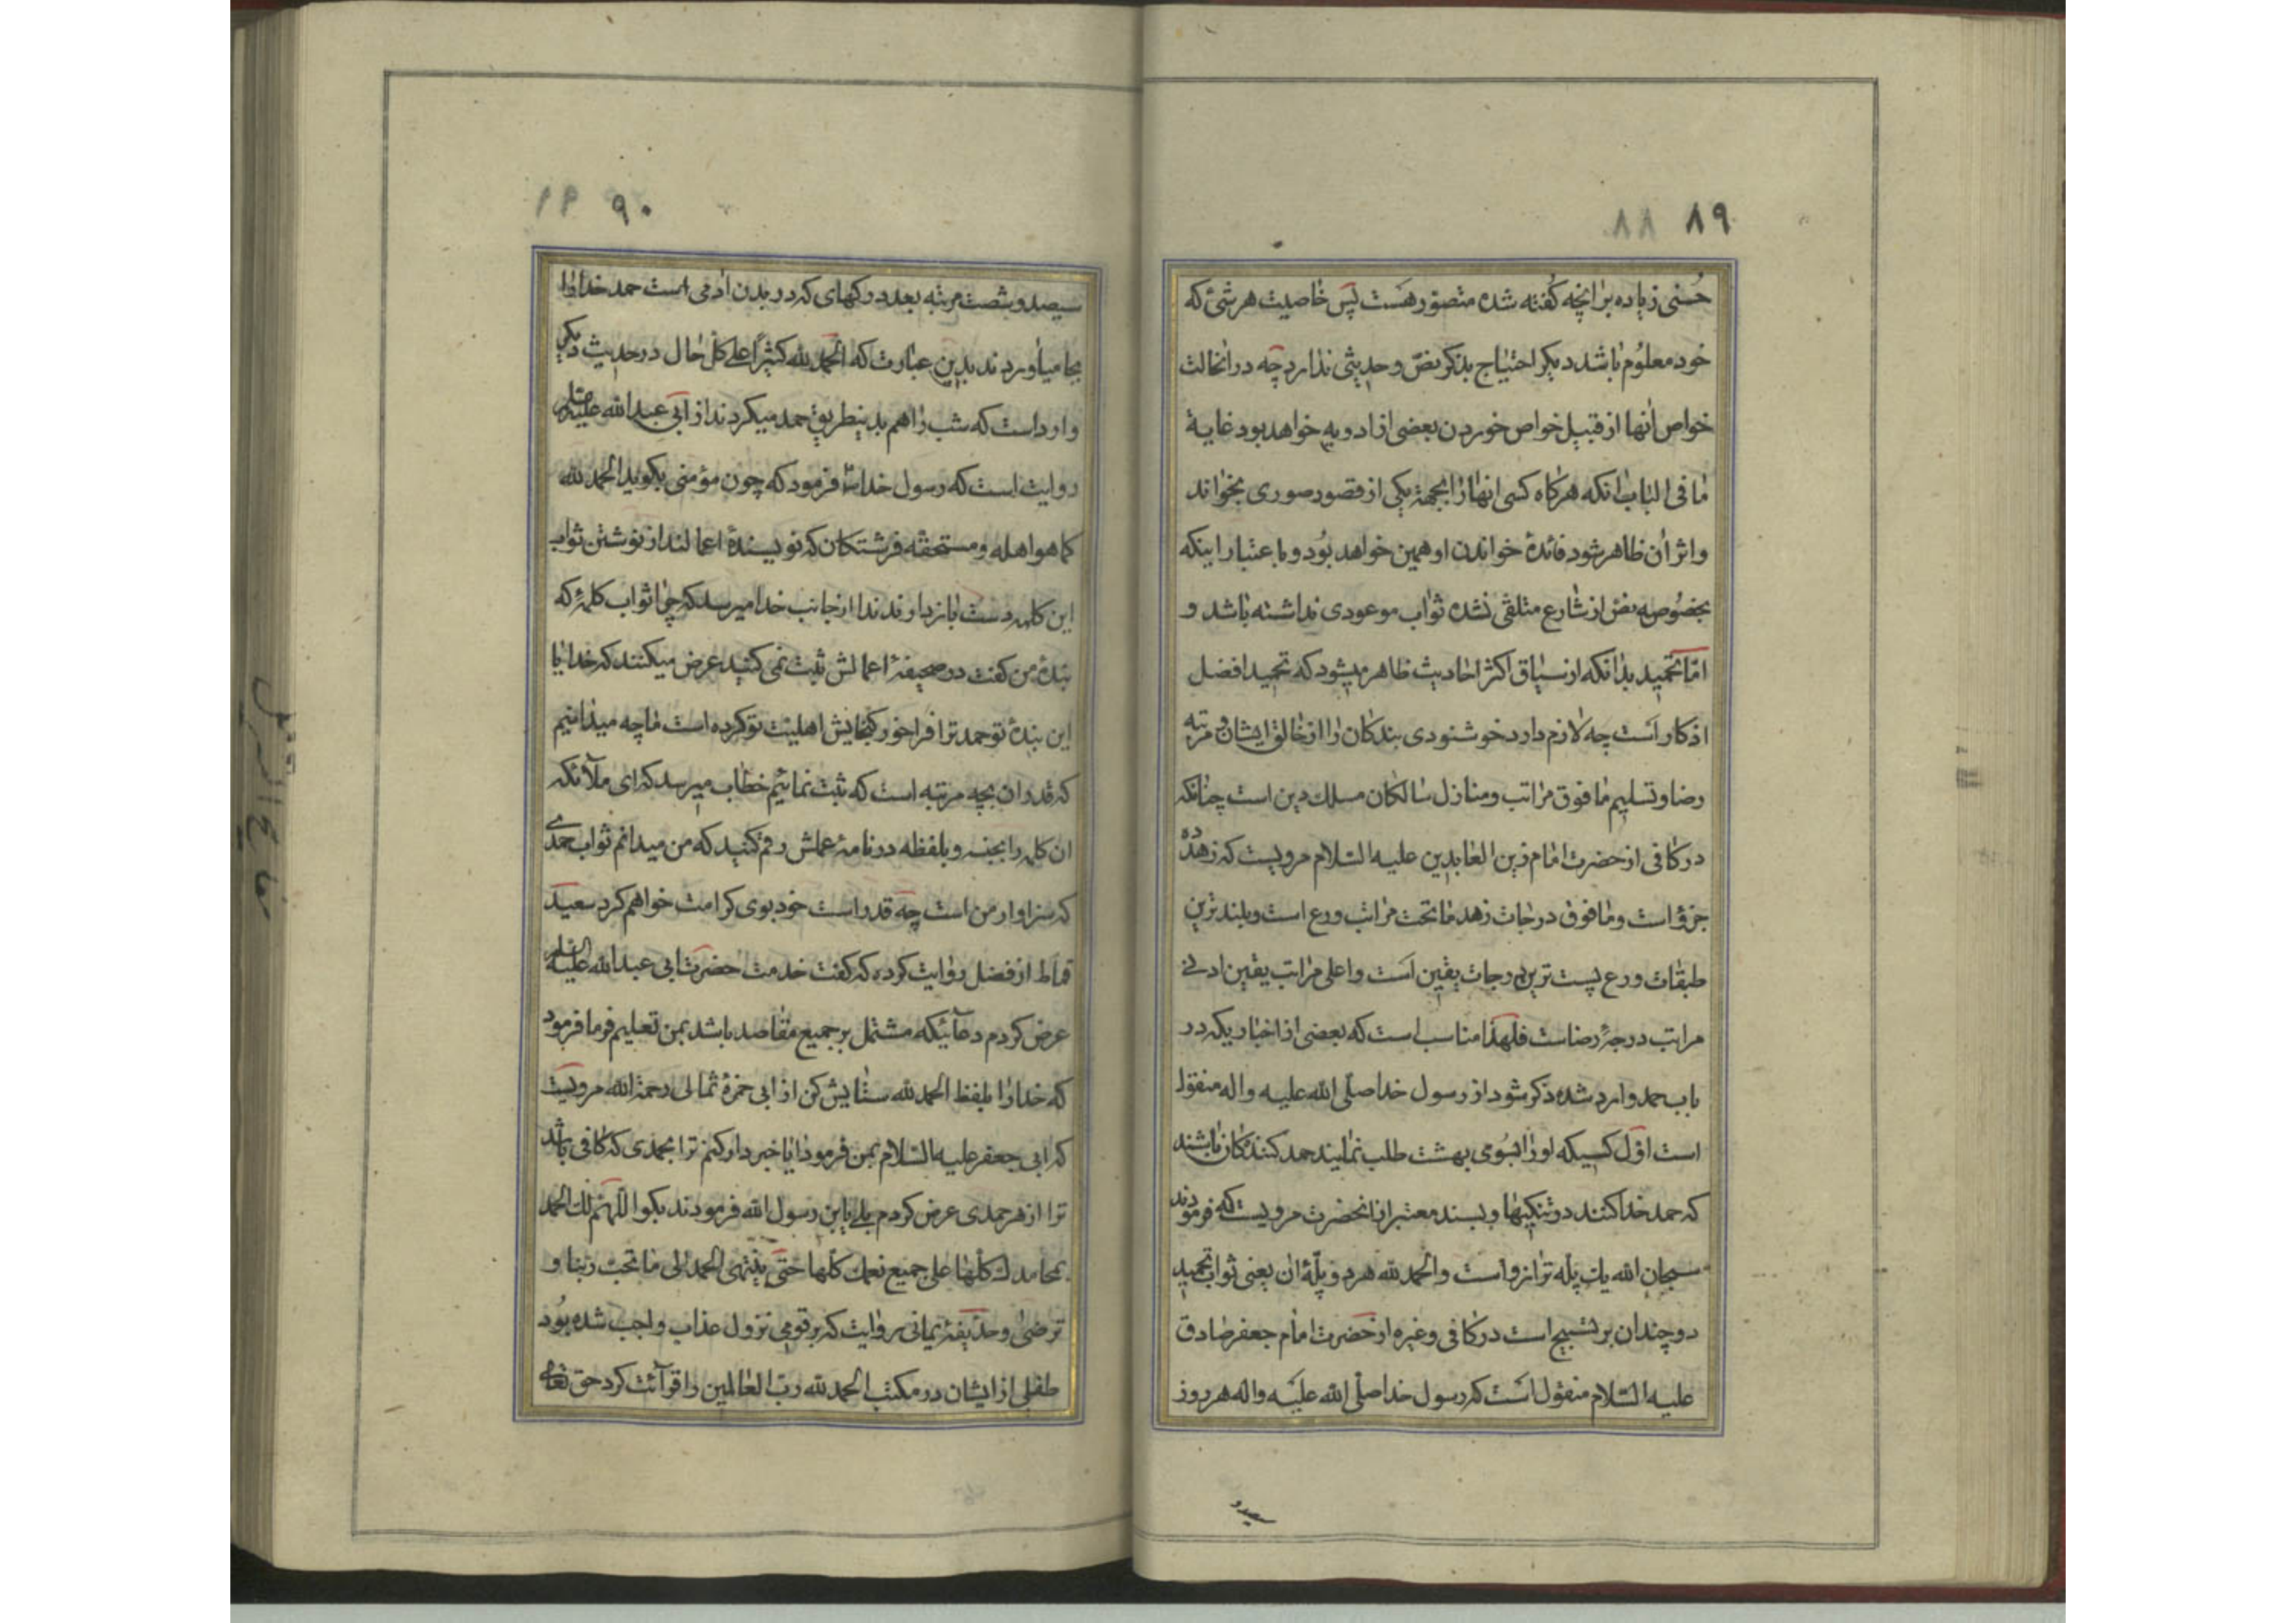 ۸۹ ۸۸
حُسنی زیاده برانچه کُفته شده متصوّر هَست پَس خاصیت هر شئ که
خود معلوُم باشد دیکر احتیاج بذکر نصّ و حدیثی ندارد چه در انحالت
خواص اٰنها از قبیل خواص خوردن بعضی از ادویه خواهد بود غایة
مٰا فی البٰاب اٰنکه هرکاه کسی انهٰا رٰا بجهة یکی از قصور صوری بخوٰاند
و اثر اُن ظاهر شود فائدهٔ خواندن او همین خواهد بُود و باعتبار اینکه
بخصُوصه نصّ از شارع متلقی نشده ثوٰاب موعودی نداشته باشد و
امّا تحمید بدٰانکه از سیٰاق اکثر احادیث ظاهر میشود که تحمید افضل
اذکار اَست چه لازم دارد خوشنودی بندکان رٰا از خالق ایشان و مرتبه
رضا و تسلیم مٰا فوق مرٰاتب و منازل سٰالکان مسلك دین است چنٰانکه
در کافی از حضرت امٰام زین العابدین علیه السّلام مرویست که زهد ده
جزؤ است و مٰا فوق درجٰات زهد مٰا تحت مرٰاتب ورع است و بلند ترین
طبقٰات ورع پست ترین درجات یقین اَست و اعلی مرٰاتب یقین ادنی
مراتب درجهٔ رضاست فلهذا مناسب است که بعضی از اخبٰاریکه در
باب حمد وارد شده ذکر شود از رسول خدا صلّی الله علیه و اله منقول
است اوّل کسیکه او رٰا بسُوی بهشت طلب نمٰایند حمد کنندکان باشند
که حمد خدا کنند در تنکیهٰا و بسند معتبر از انحضرت مرویست که فرمودند
سبحان الله یك پلّه ترٰازواست و الحمد لله هر دو پلّهٔ ان یعنی ثواب تحمید
دو چندان بر تسبیح است در کافی و غیره از حضرت امٰام جعفر صٰادق
علیه السّلام منقول اَست که رسول خدا صلّی الله علَیه و اله هر روز
سیصد و
۹۰
سیصد و شصت مرتبه بعدد رکهای که در بدن اٰدمی است حمد خدا رٰا
بجا میاوردند بدین عبارت که الحمد لله کثیرًا علی کلّ حٰال در حدیث دیکر
وارد است که شب رٰا هم بدینطریق حمد میکردند از ابی عبدالله علیه السلام
روایت است که رسول خدا ص فرمود که چون مؤمنی بکوید الحمد لله
کما هو اهله و مستحقّه فرشتکان که نویسندهٔ اعمالند از نوشتن ثوٰاب
این کلمه دست باز دارند ندا از جانب خدا میرسد که چرٰا ثوٰاب کلمهٔ که
بندهٔ من کفت در صحیفهٔ اعمالش ثبت نمی کنید عرض میکنند که خدایا
این بندهٔ تو حمد ترا فراخور کنجایش اهلیت تو کرده است مٰا چه میدٰانیم
که قدر ان بچه مرتبه است که ثبت نمٰائیم خطٰاب میرسد که ای ملآئکه
ان کلمه را بجنسه و بلفظه در نامهٔ عملش رقم کنید که من میدانم ثوٰاب حمدی
که سزاوار من است چه قدر است خود بوی کرامت خواهم کرد سعید
قماط از فضل روٰایت کرده که کفت خدمت حضرت ابی عبدالله علیه السلام
عرض کردم دعآئیکه مشتمل بر جمیع مقٰاصد باشد بمن تعلیم فرما فرمود
که خدا رٰا بلفظ الحمد لله ستٰایش کن از ابی حمزهٔ ثمالی رحمة الله مرویست
که ابی جعفر علیه السّلام بمن فرمود اٰیا خبردار کنم ترا بحمدی که کٰافی باشد
ترا از هر حمدی عرض کردم بلی یابن رسول الله فرمودند بکو اللّهمّ لك الحمد
بمحامدك کلّهٰا علی جمیع نعمك کلّها حتّی ینتهی الحمد الی مٰا تحبّ ربّنا و
ترضیٰ و حذیفهٔ یمانی روٰایت که بر قومی نزول عذاب واجب شده بُود
طفلی از ایشان در مکتب الحمد لله ربّ العالمین را قرآئت کرد حق تعالی